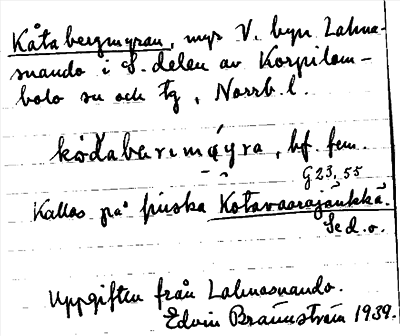 Kåtabergmyran, myr V. byn Lahna-
suando i S. delen av Korpilom-
bolo sn och tg, Norrb. l.
bf. fem.
G 23, 55
Kallas på finska Kotavaarajänkkä.
Se d. o.
Uppgiften från Lahnasuando.
Edvin Brännström 1939.